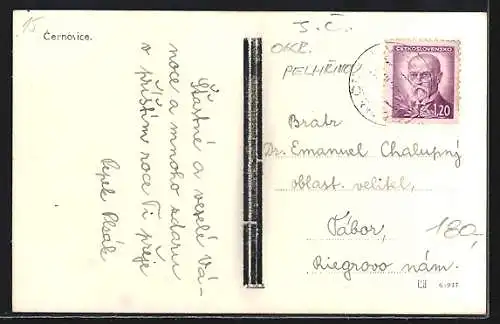 15
Černovice.
J. Č.
OKR.
PELHŘIMOV
ČESKOSLOVENSKO
1.20
Šťastné a veselé Vá-
noce a mnoho zdaru
v příštím roce Ti přeje
Pepek Plsák
Bratr
Dr. Emanuel Chalupný
oblast. velitel,
Tábor,
Riegrovo nám.
180,